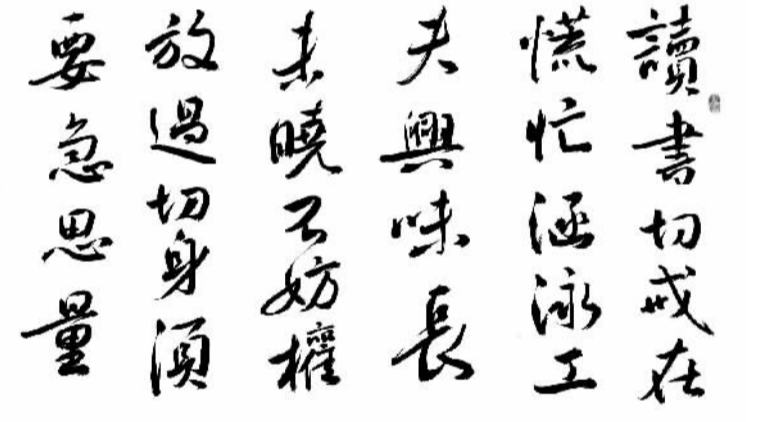 讀書切戒在
慌忙涵泳工
夫興味長
未曉不妨權
放過切身須
要急思量